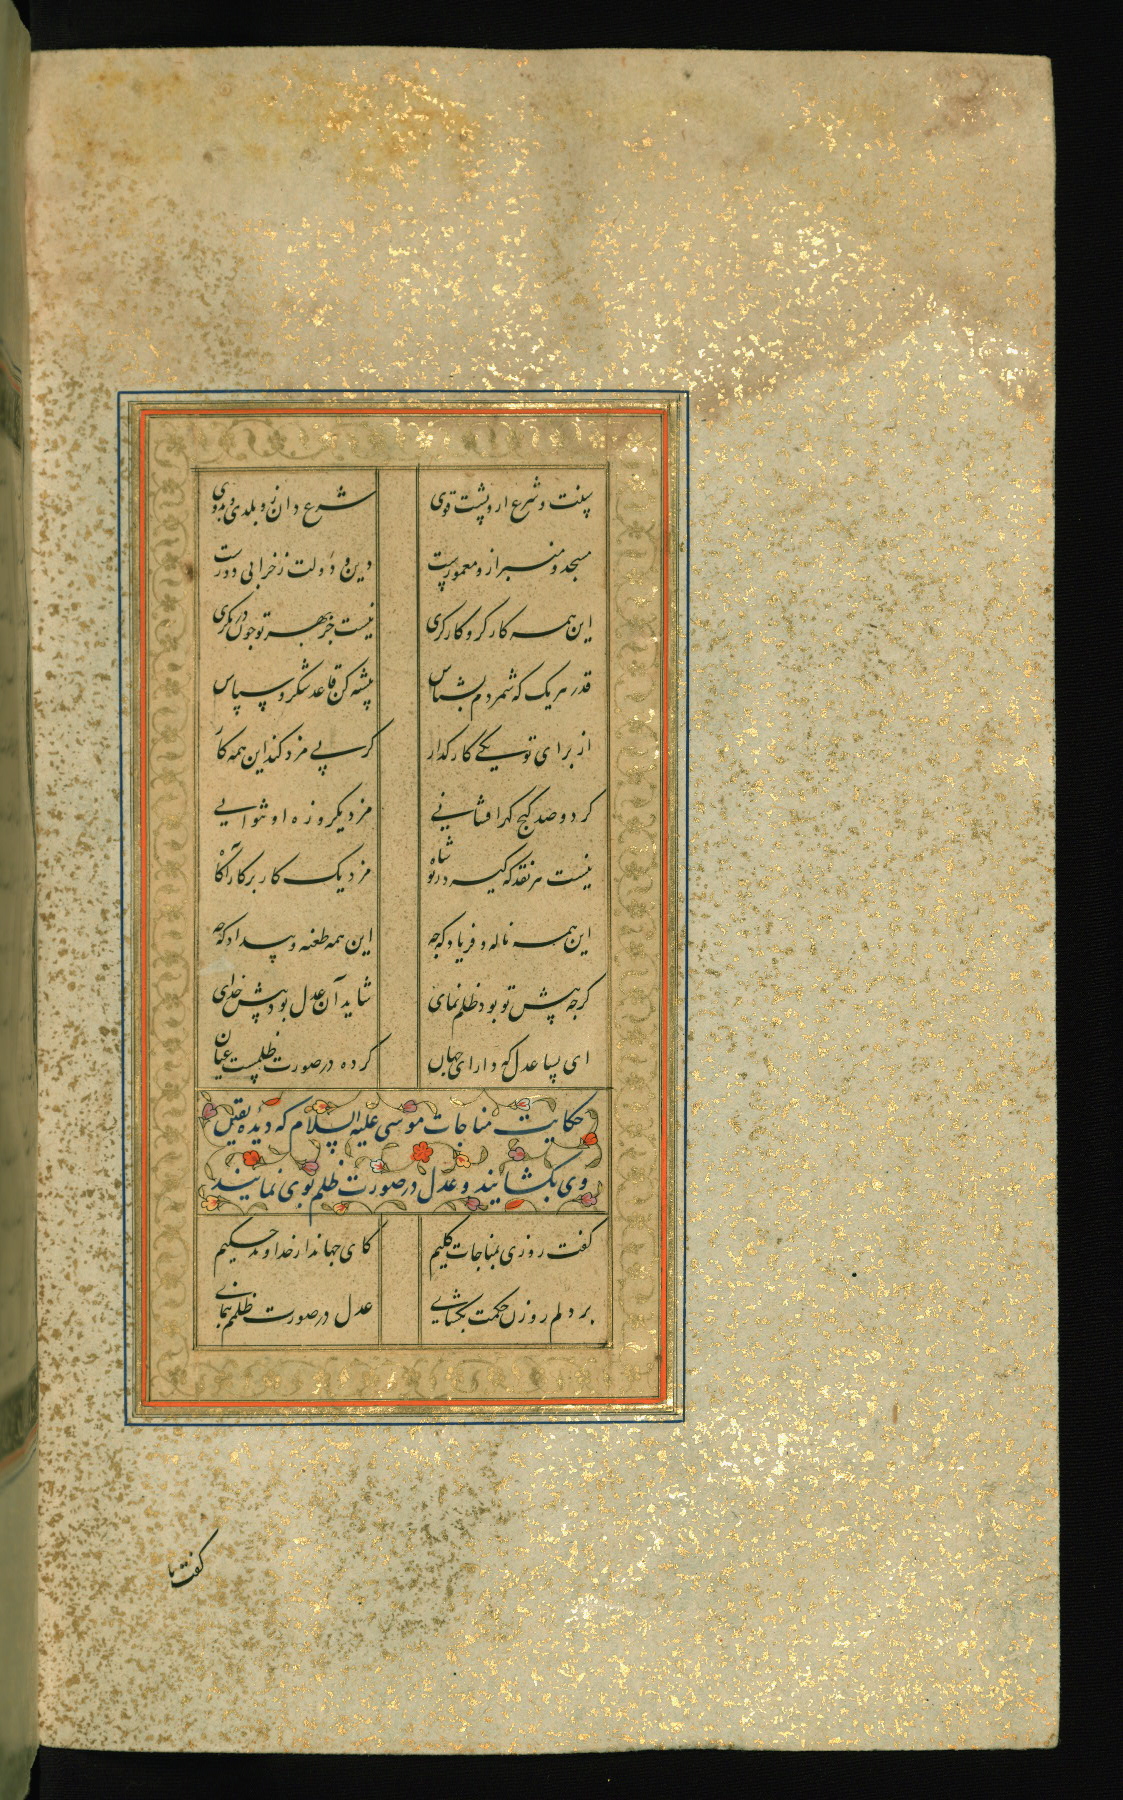 سنت و شرع ازو پشت قوی شرع دان زو بلدی و بدوی
مسجد و منبر ازو معمورست دین و دولت ز خرابی دورست
این همه کارگر و کارگری نیست جز بهر تو چون درنگری
قدر هر یک که شمردم بشناس پیشه کن قاعد شکر و سپاس
از برای تو یکی کارگذار گر پی مزد کند این همه کار
گر دو صد گنج گهر افشانی مزد یکروزه او نتوانی
نیست هر نقد که کیسه درو شاه مزد یک کار بر کارآگاه
این همه ناله و فریاد که چه این همه طعنه و بیداد که چه
گرچه پیش تو بود ظلم نمای شاید آن عدل بود پیش خدای
ای بسا عدل کو دارای جهان کرده در صورت ظلمیست عیان
حکایت مناجات موسی علیه السلام که دیده یقین
وی بگشایند و عدل در صورت ظلم بوی نمایند
گفت روزی بمناجات کلیم کای جهاندار خداوند حکیم
بر دلم روزن حکمت بگشای عدل در صورت ظلمم بنمای
گفت تا